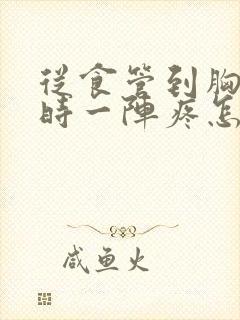 從食管到胸
時一陣疼怎
咸鱼火